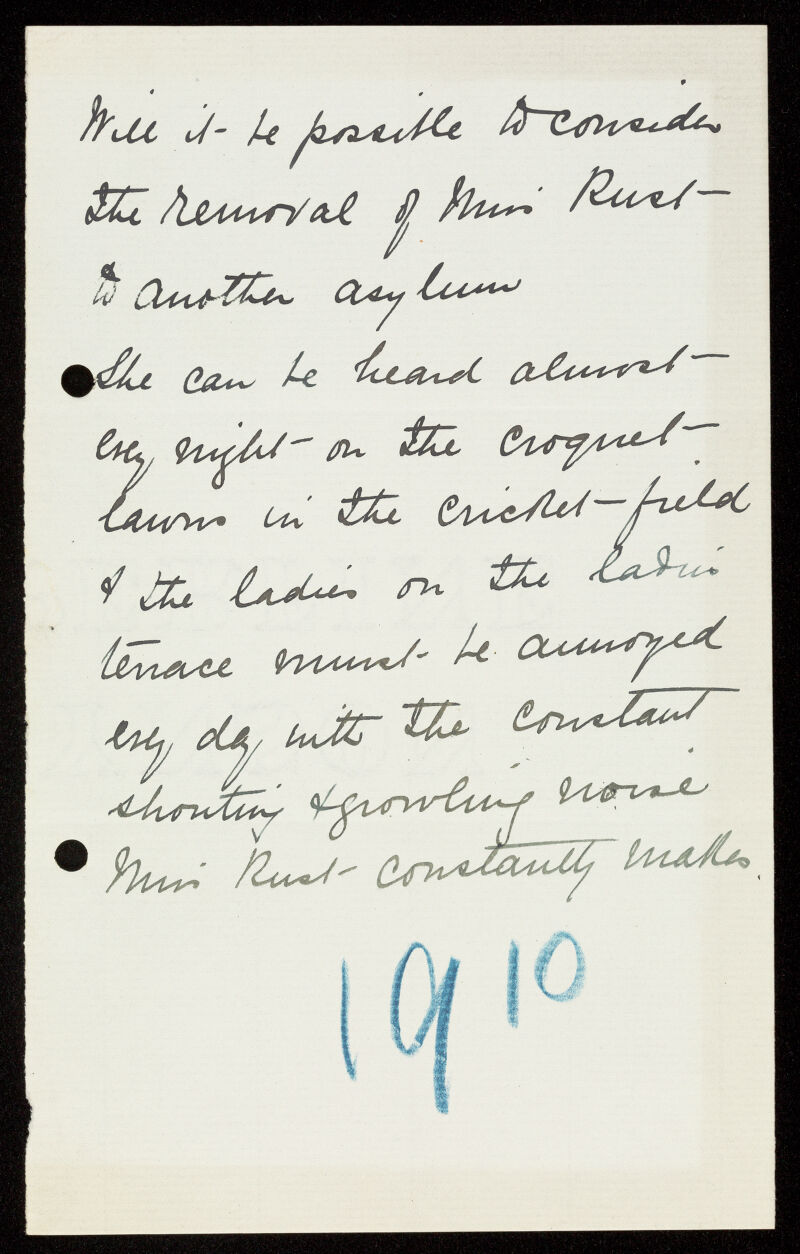 Will it be possible to consider
the removal of Miss Rust
to another asylum
She can be heard almost
every night on the croquet
lawns in the cricket field
& the ladies on the ladies
terrace must be annoyed
every day with the constant
shouting & growling noise
Miss Rust constantly makes.
1910